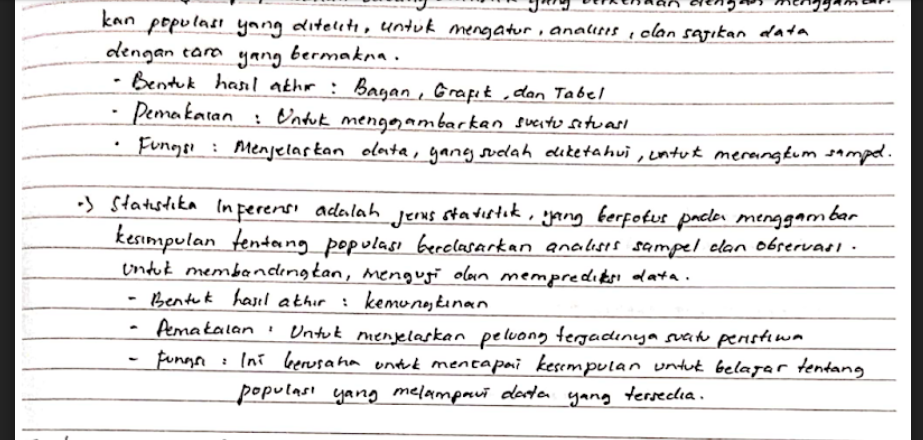 yang berkenaan dengan menggambar-
kan populasi yang diteliti, untuk mengatur, analisis, dan sajikan data
dengan cara yang bermakna.
- Bentuk hasil akhir : Bagan, Grafik, dan Tabel
- Pemakaian : Untuk menggambarkan suatu situasi
• Fungsi : Menjelaskan data, yang sudah diketahui, untuk merangkum sampel.
•> Statistika Inferensi adalah jenis statistik, yang berfokus pada menggambar
kesimpulan tentang populasi berdasarkan analisis sampel dan observasi.
Untuk membandingkan, menguji dan memprediksi data.
- Bentuk hasil akhir : kemungkinan
- Pemakaian : Untuk menjelaskan peluang terjadinya suatu peristiwa
- Fungsi : Ini berusaha untuk mencapai kesimpulan untuk belajar tentang
populasi yang melampaui data yang tersedia.